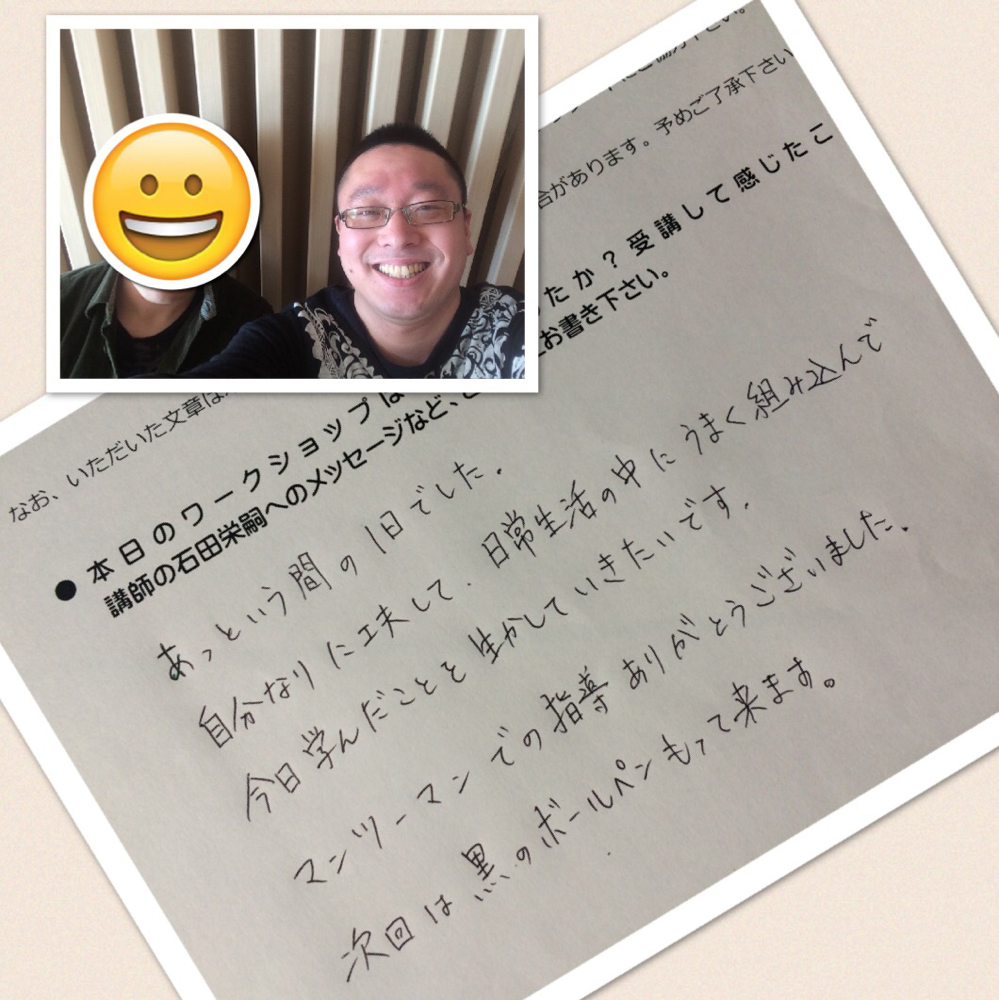 合があります。予めご了承下さい
なお、いただいた文章は
● 本日のワークショップは
たか？受講して感じたこ
講師の石田栄嗣へのメッセージなど、
お書き下さい。
あっという間の1日でした。
自分なりに工夫して、日常生活の中にうまく組み込んで
今日学んだことを生かしていきたいです。
マンツーマンでの指導ありがとうございました。
次回は黒のボールペンもって来ます。